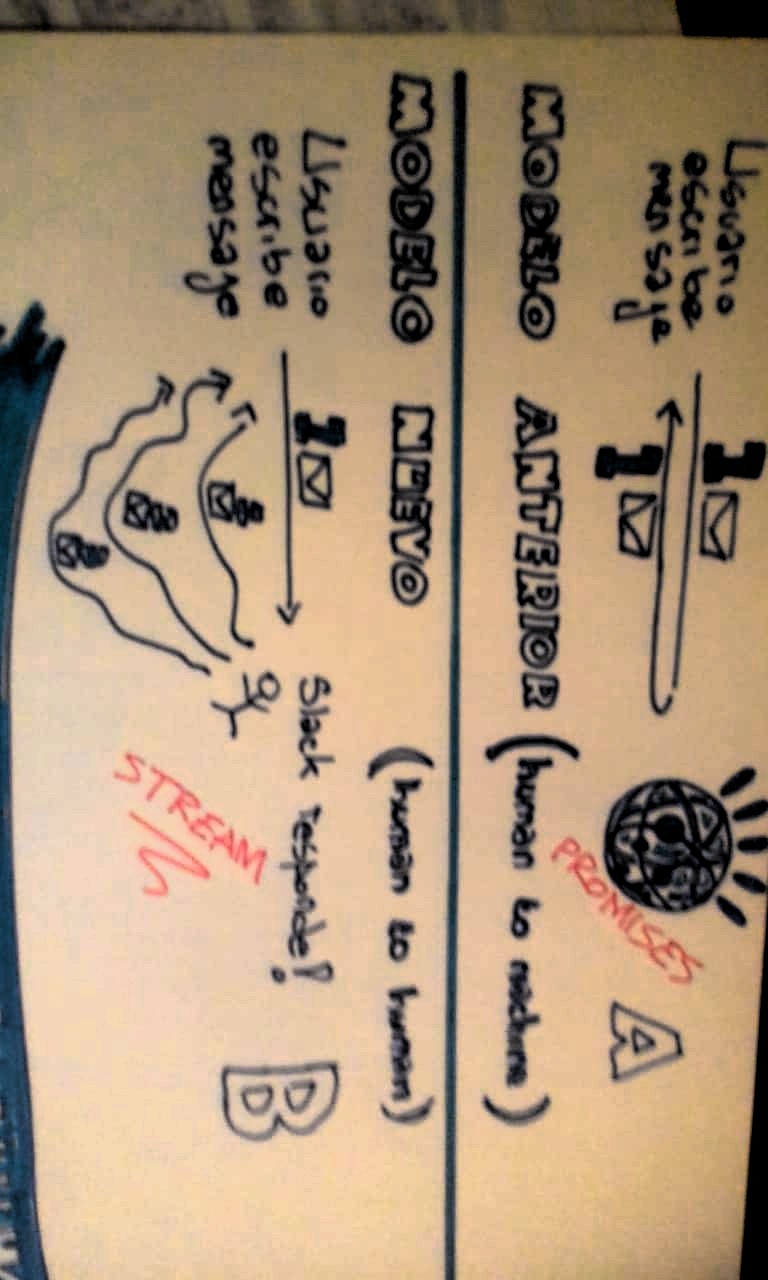 Usuario
escribe
mensaje
1
1
PROMISES
A
MODELO ANTERIOR (human to machine)
MODELO NUEVO (human to human)
Usuario
escribe
mensaje
1
Slack responde!
B
STREAM